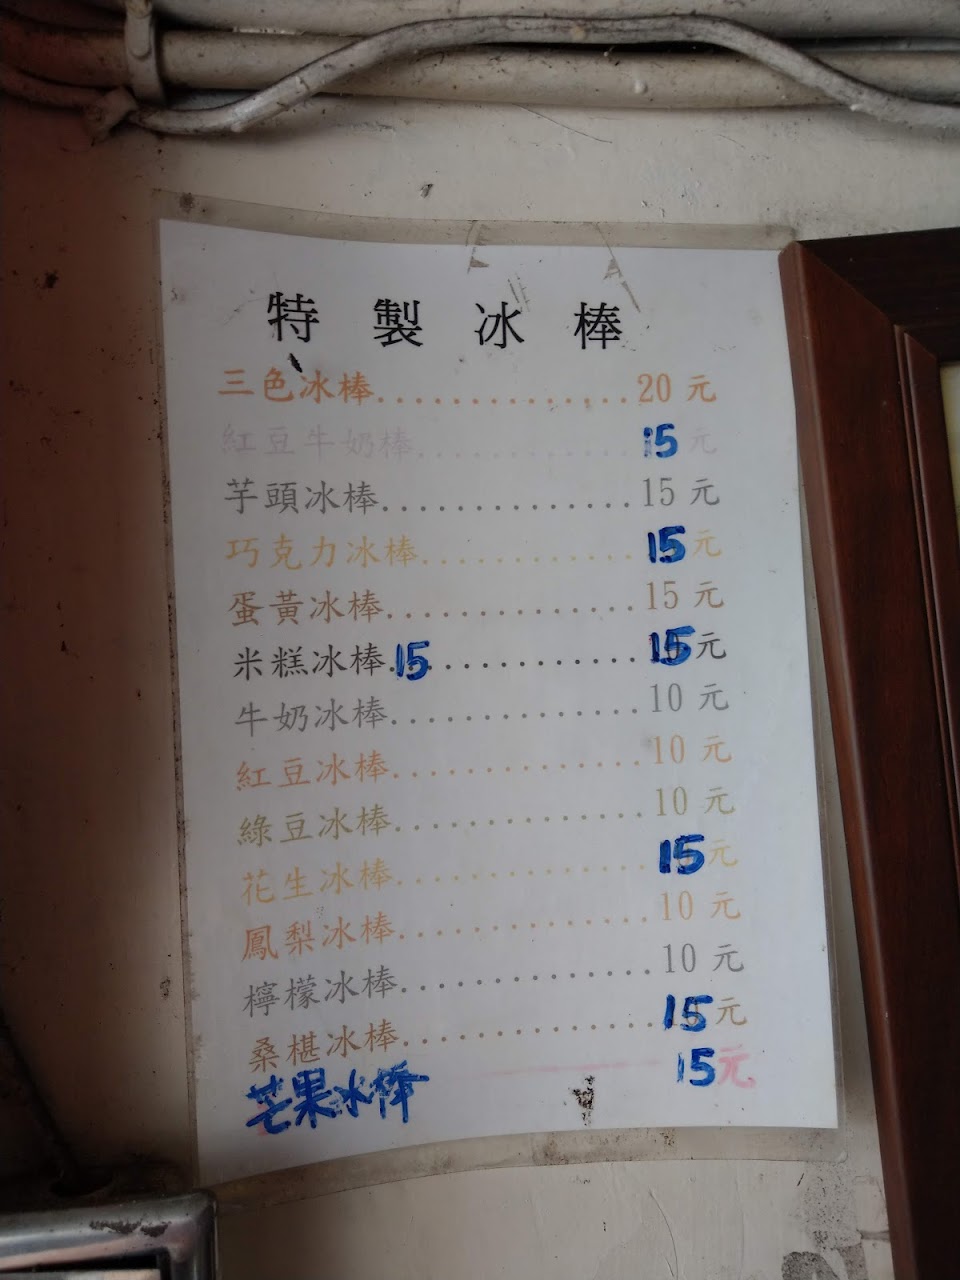 特製冰棒
三色冰棒..............20元
紅豆牛奶棒............15元
芋頭冰棒..............15元
巧克力冰棒............15元
蛋黃冰棒..............15元
米糕冰棒.15............15元
牛奶冰棒..............10元
紅豆冰棒..............10元
綠豆冰棒..............10元
花生冰棒..............15元
鳳梨冰棒..............10元
檸檬冰棒..............10元
桑椹冰棒..............15元
芒果冰棒 15元